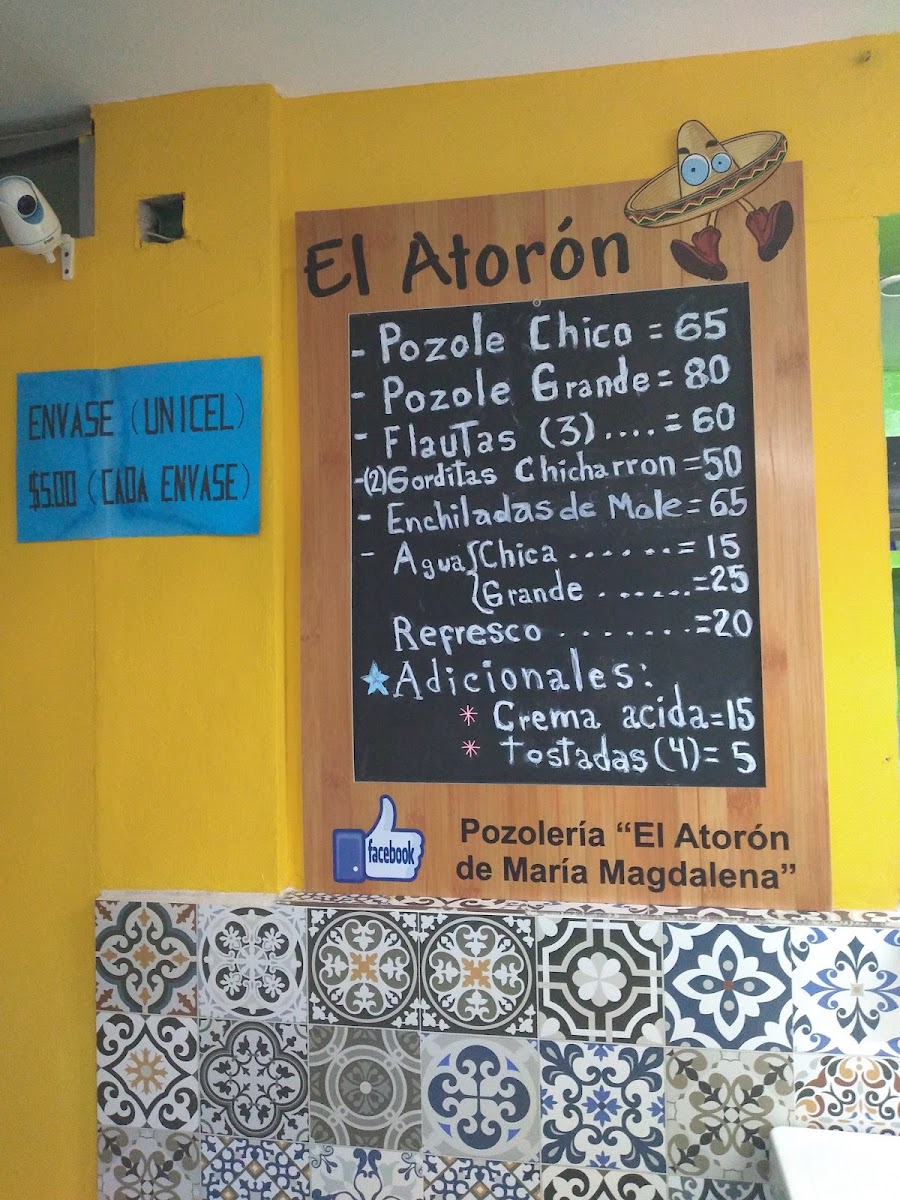 El Atorón
- Pozole Chico = 65
- Pozole Grande = 80
- Flautas (3).... = 60
-(2)Gorditas Chicharron =50
- Enchiladas de Mole= 65
- Agua{Chica .......= 15
{Grande ......=25
Refresco ........=20
Adicionales:
* Crema acida=15
* tostadas (4)= 5
facebook
Pozolería “El Atorón
de María Magdalena”
ENVASE (UNICEL)
$5.00 (CADA ENVASE)